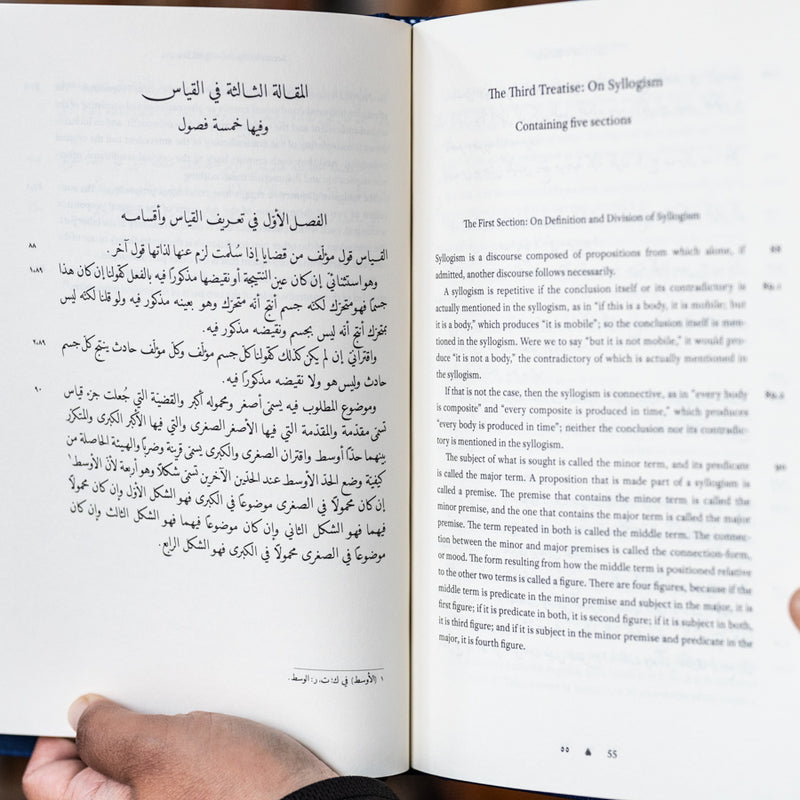 المقالة الثالثة في القياس
وفيها خمسة فصول
الفصل الأول في تعريف القياس وأقسامه
٨٨
القياس قول مؤلّف من قضايا إذا سُلّمت لزم عنها لذاتها قول آخر.
١.٨٩
وهو استثنائيّ إن كان عين النتيجة أو نقيضها مذكورًا فيه بالفعل كقولنا إن كان هذا
جسمًا فهو متحيّز لكنّه جسم أنتج أنه متحيّز وهو بعينه مذكور فيه ولو قلنا لكنّه ليس
بمتحيّز أنتج أنه ليس بجسم ونقيضه مذكور فيه.
٢.٨٩
واقترانيّ إن لم يكن كذلك كقولنا كلّ جسم مؤلّف وكلّ مؤلّف حادث ينتج كلّ جسم
حادث وليس هو ولا نقيضه مذكورًا فيه.
٩٠
وموضوع المطلوب فيه يسمّى أصغر ومحموله أكبر والقضيّة التي جُعلت جزء قياس
تسمّى مقدّمة والمقدّمة التي فيها الأصغر الصغرى والتي فيها الأكبر الكبرى والمتكرّر
بينهما حدًّا أوسط واقتران الصغرى والكبرى يسمّى قرينة وضربًا والهيئة الحاصلة من
كيفيّة وضع الحدّ الأوسط عند الحدّين الآخرين تسمّى شكلًا وهو أربعة لأنّ الأوسط١
إن كان محمولًا في الصغرى موضوعًا في الكبرى فهو الشكل الأول وإن كان محمولًا
فيهما فهو الشكل الثاني وإن كان موضوعًا فيهما فهو الشكل الثالث وإن كان
موضوعًا في الصغرى محمولًا في الكبرى فهو الشكل الرابع.
١ (الأوسط) في ك؛ ت، ر: الوسط.
The Third Treatise: On Syllogism
Containing five sections
The First Section: On Definition and Division of Syllogism
Syllogism is a discourse composed of propositions from which alone, if
admitted, another discourse follows necessarily.
A syllogism is repetitive if the conclusion itself or its contradictory is
actually mentioned in the syllogism, as in “if this is a body, it is mobile; but
it is a body,” which produces “it is mobile”; so the conclusion itself is men-
tioned in the syllogism. Were we to say “but it is not mobile,” it would pro-
duce “it is not a body,” the contradictory of which is actually mentioned in
the syllogism.
If that is not the case, then the syllogism is connective, as in “every body
is composite” and “every composite is produced in time,” which produces
“every body is produced in time”; neither the conclusion nor its contradic-
tory is mentioned in the syllogism.
The subject of what is sought is called the minor term, and its predicate
is called the major term. A proposition that is made part of a syllogism is
called a premise. The premise that contains the minor term is called the
minor premise, and the one that contains the major term is called the major
premise. The term repeated in both is called the middle term. The connec-
tion between the minor and major premises is called the connection-form,
or mood. The form resulting from how the middle term is positioned relative
to the other two terms is called a figure. There are four figures, because if the
middle term is predicate in the minor premise and subject in the major, it is
first figure; if it is predicate in both, it is second figure; if it is subject in both,
it is third figure; and if it is subject in the minor premise and predicate in the
major, it is fourth figure.
٥٥ 55